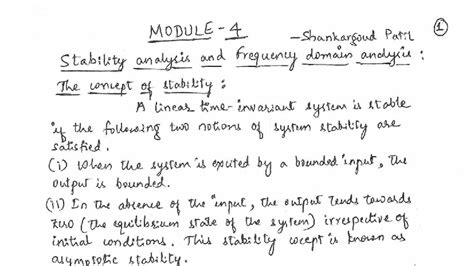 ①
MODULE-4
-Shankargoud Patil
Stability analysis and frequency domain analysis :
The concept of stability :
A linear time-invariant system is stable
if the following two notions of system stability are
satisfied.
(i) When the system is excited by a bounded input, the
output is bounded.
(ii) In the absence of the input, the output tends towards
zero (the equilibrium state of the system) irrespective of
initial conditions. This stability cocept is known as
asymptotic stability.